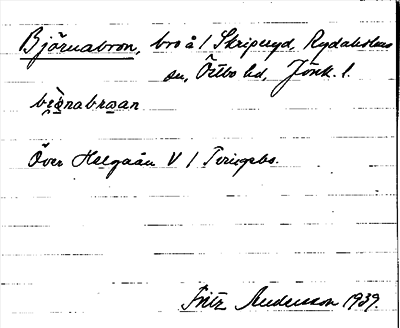 Björnabron, bro å / Skriperyd, Rydaholms
sn, Östbo hd, Jönk. l.
bı̀ǫ̀nabroan
Över Helgaån V / Tvingebo.
Fritz Andersson 1939.